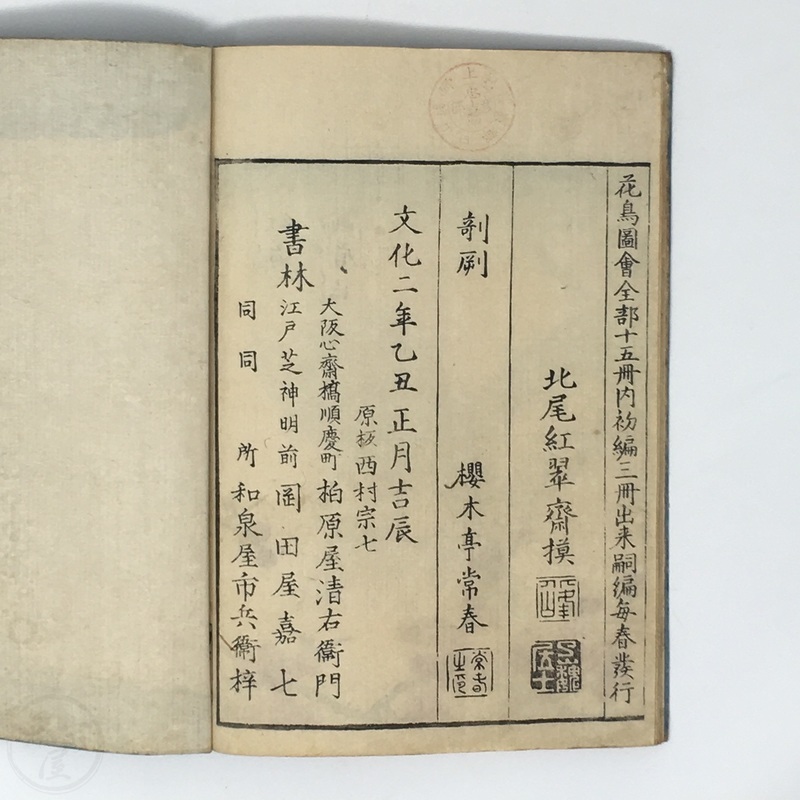 花鳥圖會全部十五冊内初編三冊出来嗣編毎春發行
北尾紅翠齋模
剞劂
櫻木亭常春
文化二年乙丑正月吉辰
原板西村宗七
大阪心齋橋順慶町 柏原屋清右衞門
書林 江戸芝神明前 岡田屋嘉七
同同所 和泉屋市兵衞梓